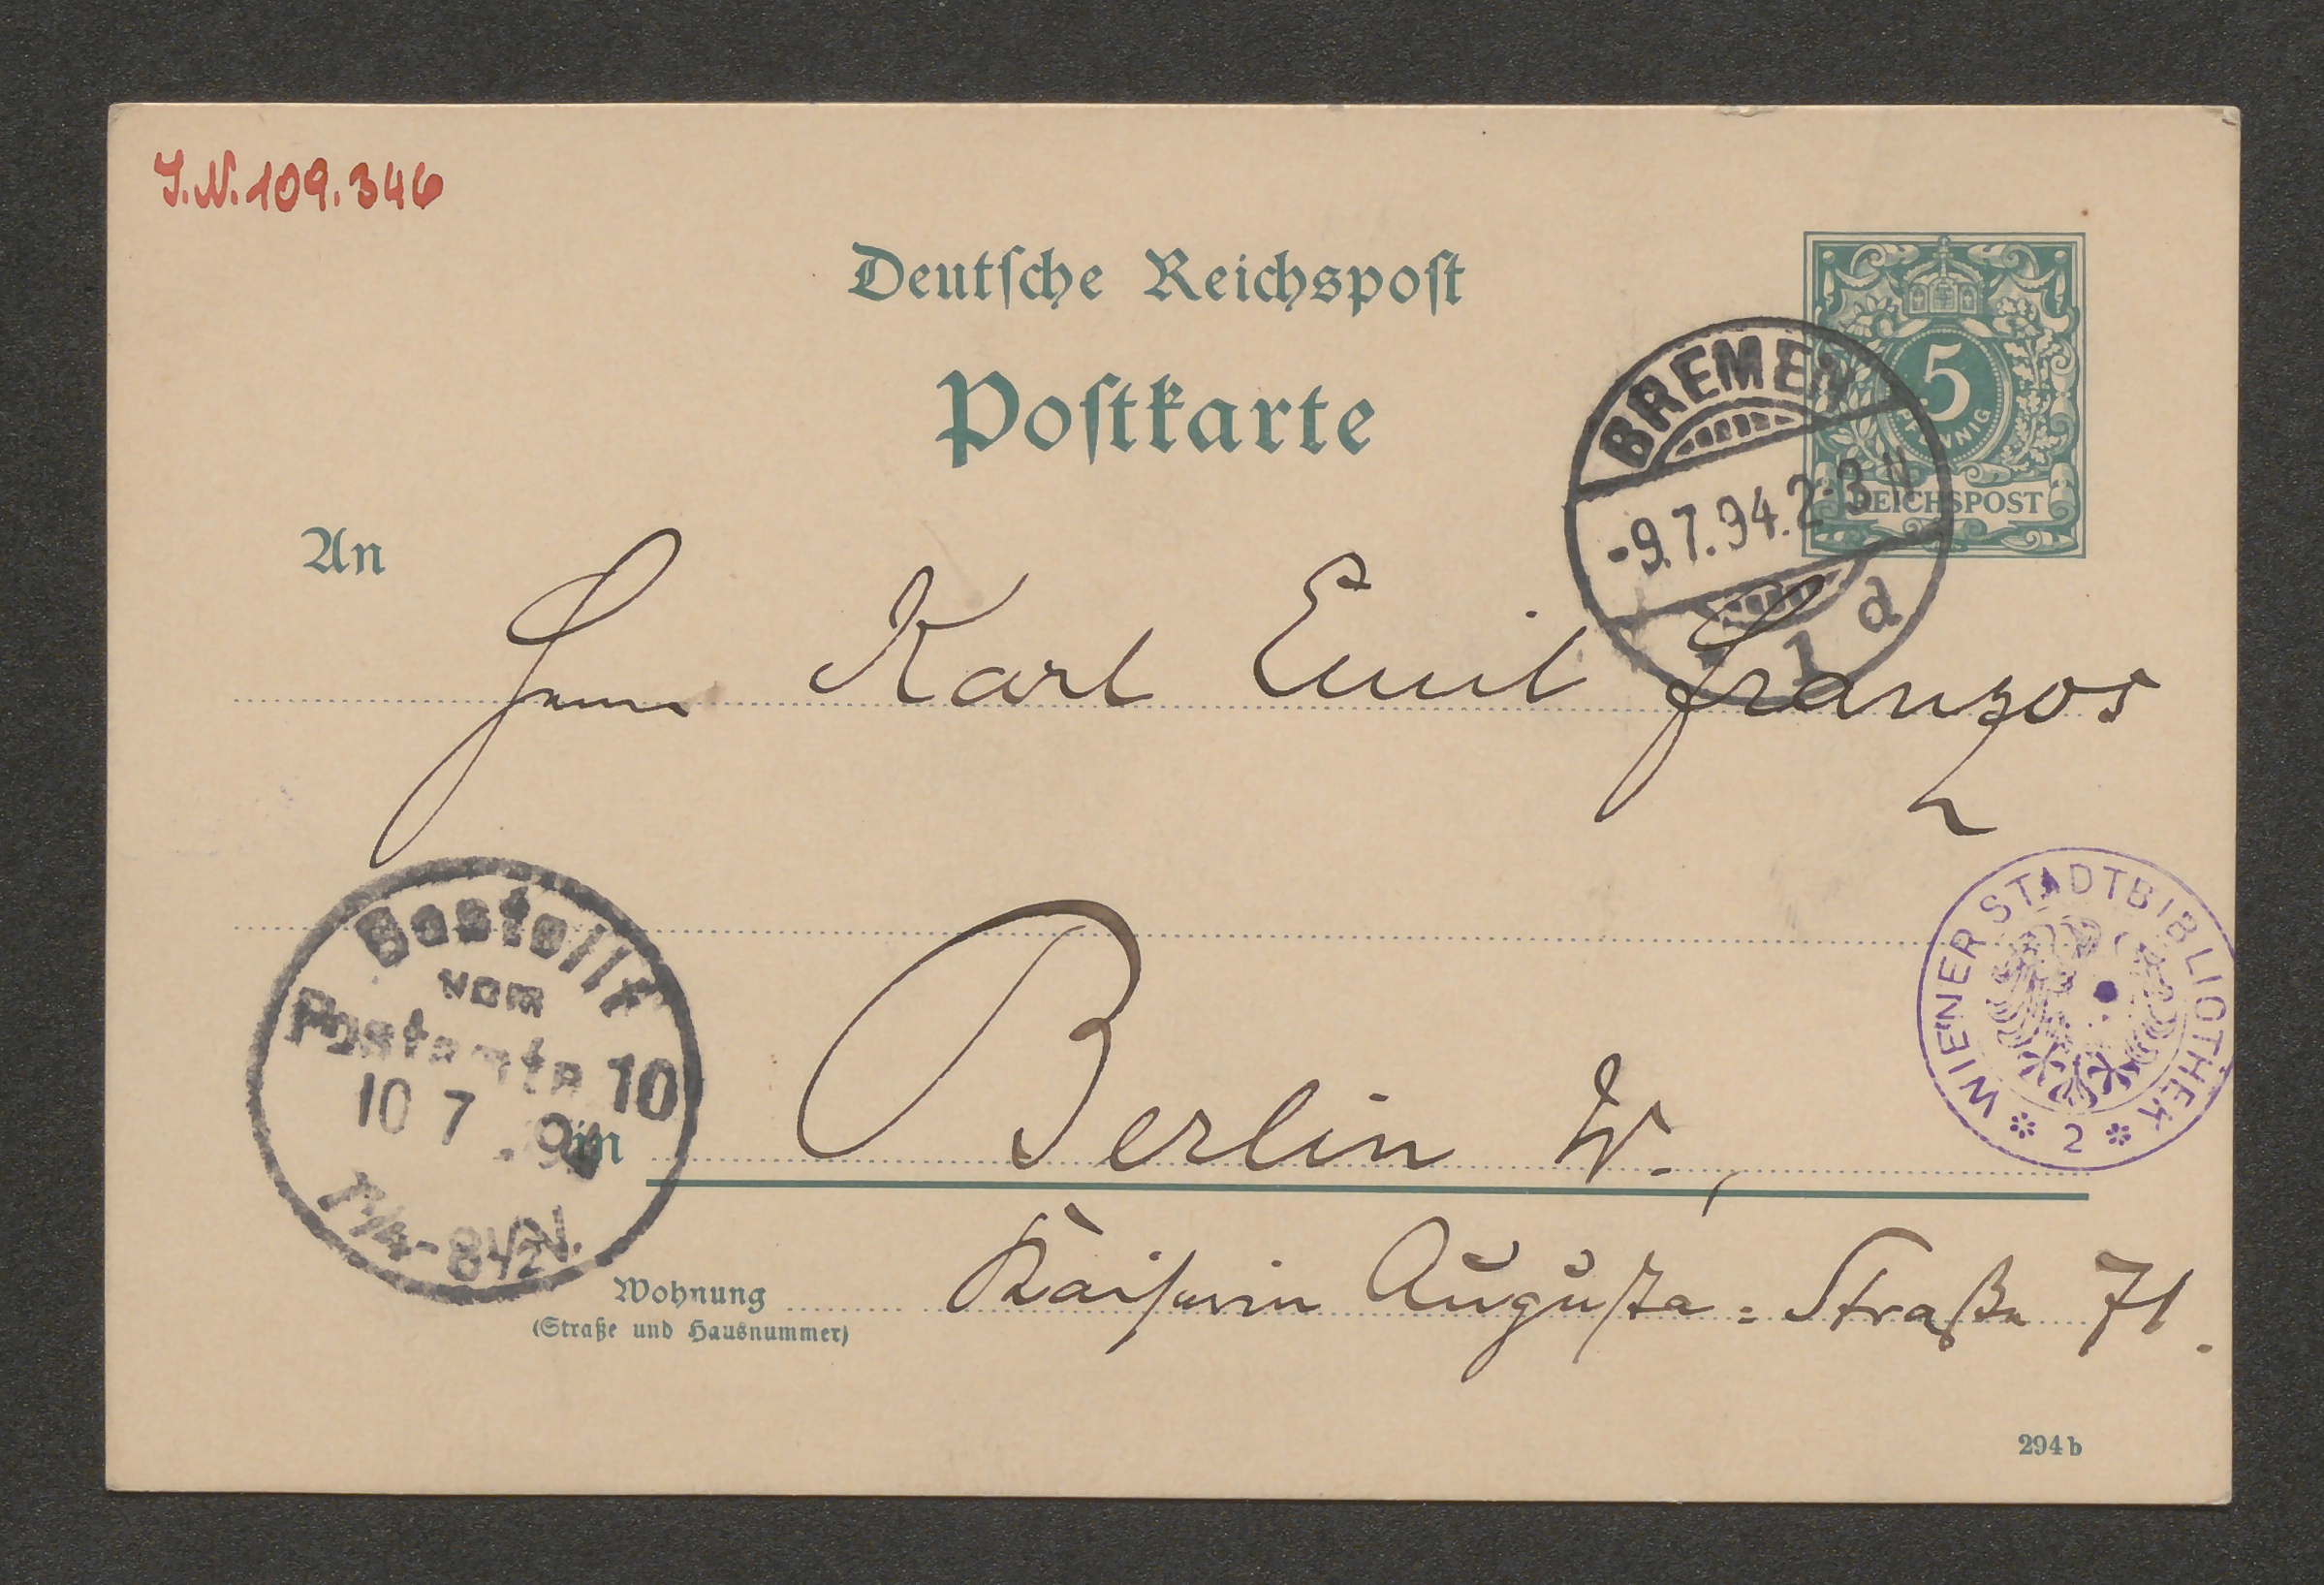 J.N. 109.346
Deutsche Reichspost
Postkarte
5
PFENNIG
REICHSPOST
BREMEN
-9.7.94. 2-3 N
1 d
An
Herrn Karl Emil Franzos
Bestellt
vom
Postamte 10
10 7 .94
7¼-8½N.
WIENER STADTBIBLIOTHEK
2
in Berlin W.,
Wohnung Kaiserin Augusta=Straße 71.
(Straße und Hausnummer)
294 b